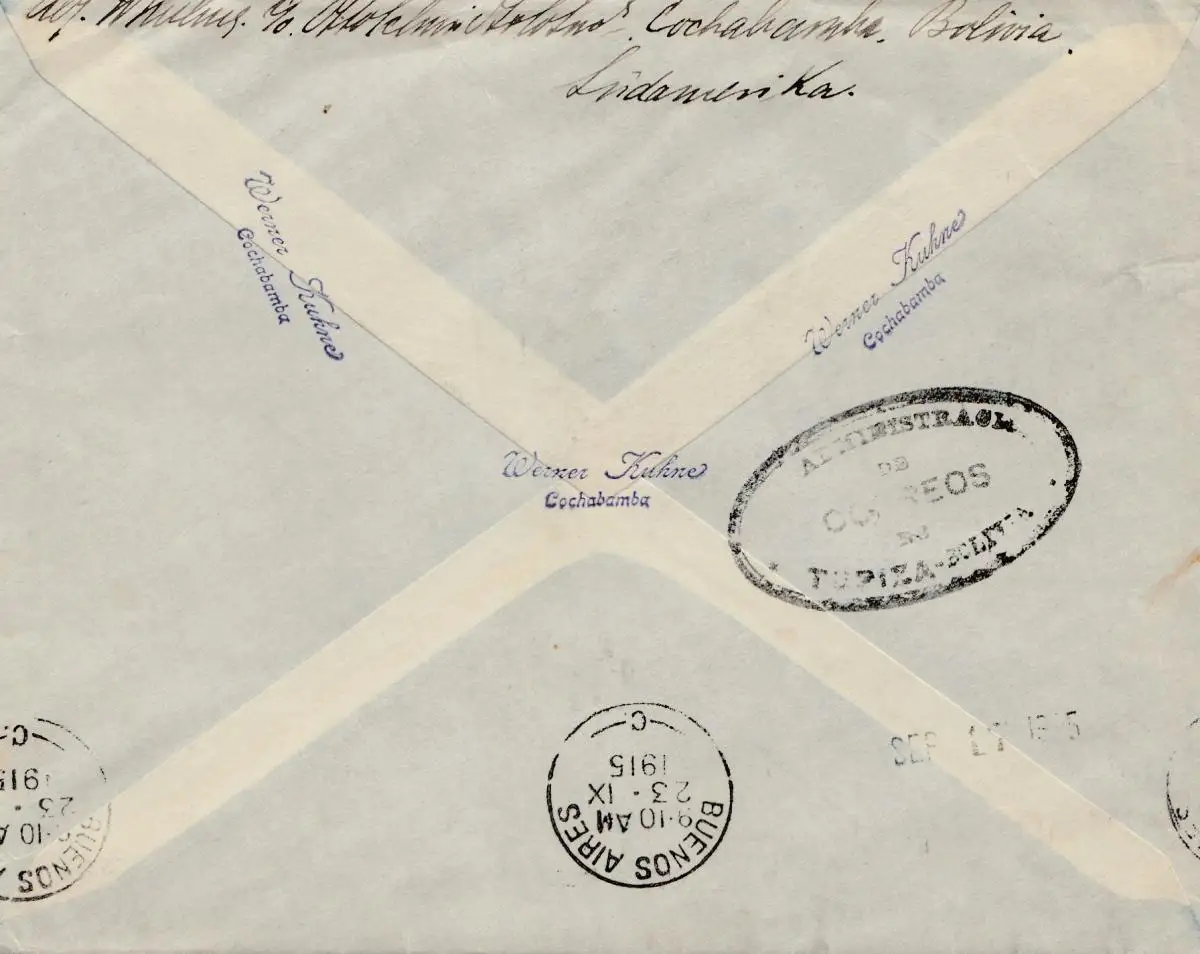 Cochabamba, Bolivia.
Südamerika.
Werner Kuhne
Cochabamba
Werner Kuhne
Cochabamba
Werner Kuhne
Cochabamba
ADMINISTRACI
DE
CORREOS
DE
TUPIZA-BOLIVIA
SEP 1915
BUENOS AIRES
9·10 AM
23·IX
1915
C.
BUENOS
10 A
23·
1915
C.